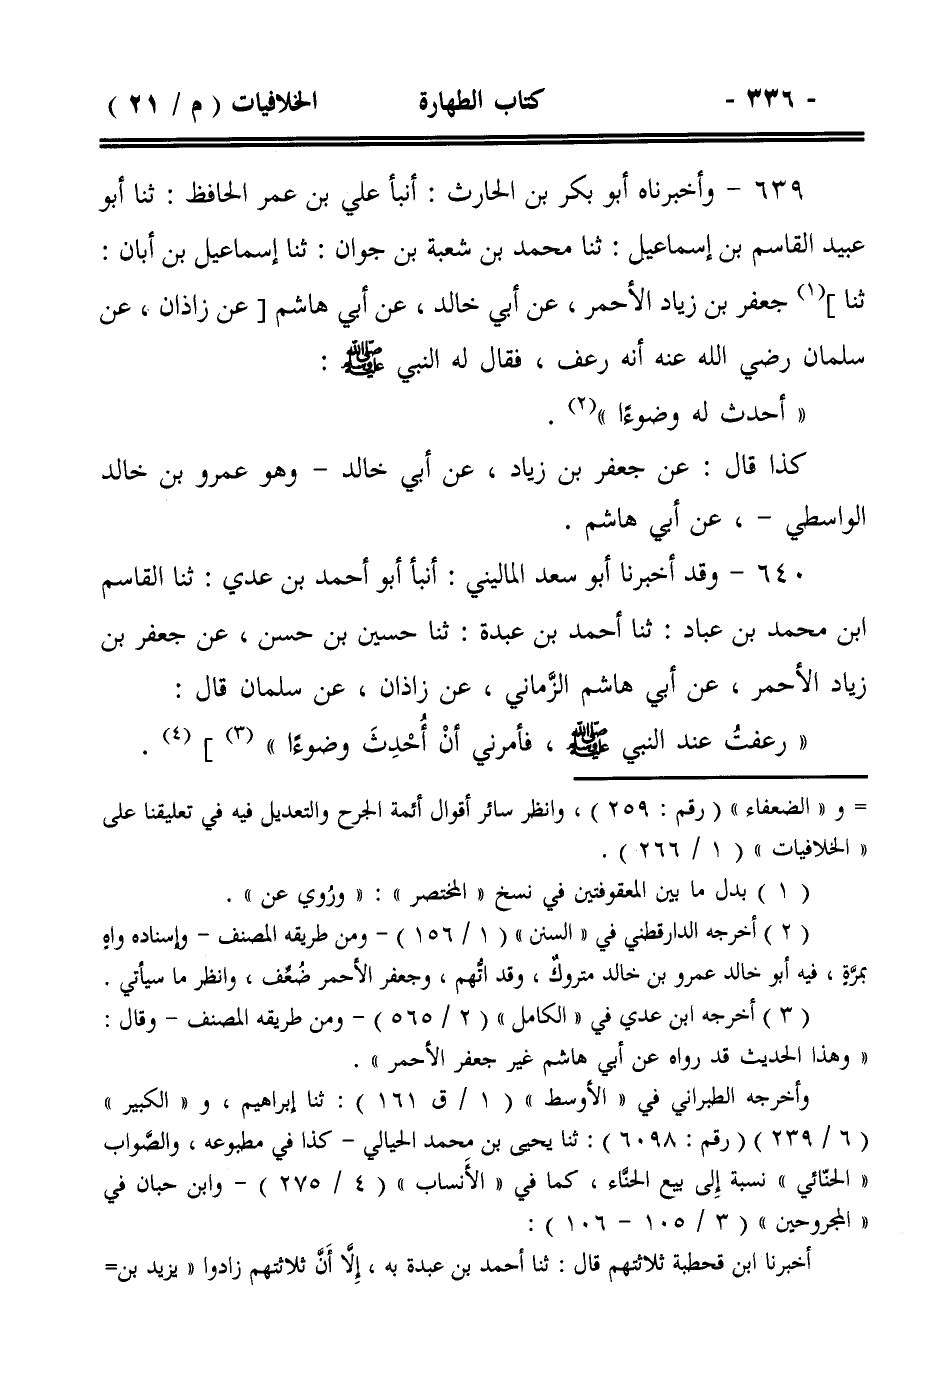 - ٣٣٦ - كتاب الطهارة الخلافيات ( م / ٢١ )
٦٣٩ - وأخبرناه أبو بكر بن الحارث : أنبأ علي بن عمر الحافظ : ثنا أبو
عبيد القاسم بن إسماعيل : ثنا محمد بن شعبة بن جوان : ثنا إسماعيل بن أبان :
ثنا ](١) جعفر بن زياد الأحمر ، عن أبي خالد ، عن أبي هاشم [ عن زاذان ، عن
سلمان رضي الله عنه أنه رعف ، فقال له النبي ﷺ :
« أحدث له وضوءًا »(٢) .
كذا قال : عن جعفر بن زياد ، عن أبي خالد - وهو عمرو بن خالد
الواسطي - ، عن أبي هاشم .
٦٤٠ - وقد أخبرنا أبو سعد الماليني : أنبأ أبو أحمد بن عدي : ثنا القاسم
ابن محمد بن عباد : ثنا أحمد بن عبدة : ثنا حسين بن حسن ، عن جعفر بن
زياد الأحمر ، عن أبي هاشم الزَّماني ، عن زاذان ، عن سلمان قال :
« رعفتُ عند النبي ﷺ ، فأمرني أنْ أُحْدِثَ وضوءًا » (٣) ] (٤) .
= و « الضعفاء » ( رقم : ٢٥٩ ) ، وانظر سائر أقوال أئمة الجرح والتعديل فيه في تعليقنا على
« الخلافيات » ( ١ / ٢٦٦ ) .
( ١ ) بدل ما بين المعقوفتين في نسخ « المختصر » : « ورُوي عن » .
( ٢ ) أخرجه الدارقطني في « السنن » ( ١ / ١٥٦ ) - ومن طريقه المصنف - وإسناده واهٍ
بمرَّةٍ ، فيه أبو خالد عمرو بن خالد متروكٌ ، وقد اتُّهم ، وجعفر الأحمر ضُعِّف ، وانظر ما سيأتي .
( ٣ ) أخرجه ابن عدي في « الكامل » ( ٢ / ٥٦٥ ) - ومن طريقه المصنف - وقال :
« وهذا الحديث قد رواه عن أبي هاشم غير جعفر الأحمر » .
وأخرجه الطبراني في « الأوسط » ( ١ / ق ١٦١ ) : ثنا إبراهيم ، و « الكبير »
( ٦ / ٢٣٩ ) ( رقم : ٦٠٩٨ ) : ثنا يحيى بن محمد الحيالي - كذا في مطبوعه ، والصَّواب
« الحنّائي » نسبة إلى بيع الحنَّاء ، كما في « الأَنساب » ( ٤ / ٢٧٥ ) - وابن حبان في
« المجروحين » ( ٣ / ١٠٥ - ١٠٦ ) :
أخبرنا ابن قحطبة ثلاثتهم قال : ثنا أحمد بن عبدة به ، إِلَّا أَنَّ ثلاثتهم زادوا « يزيد بن=